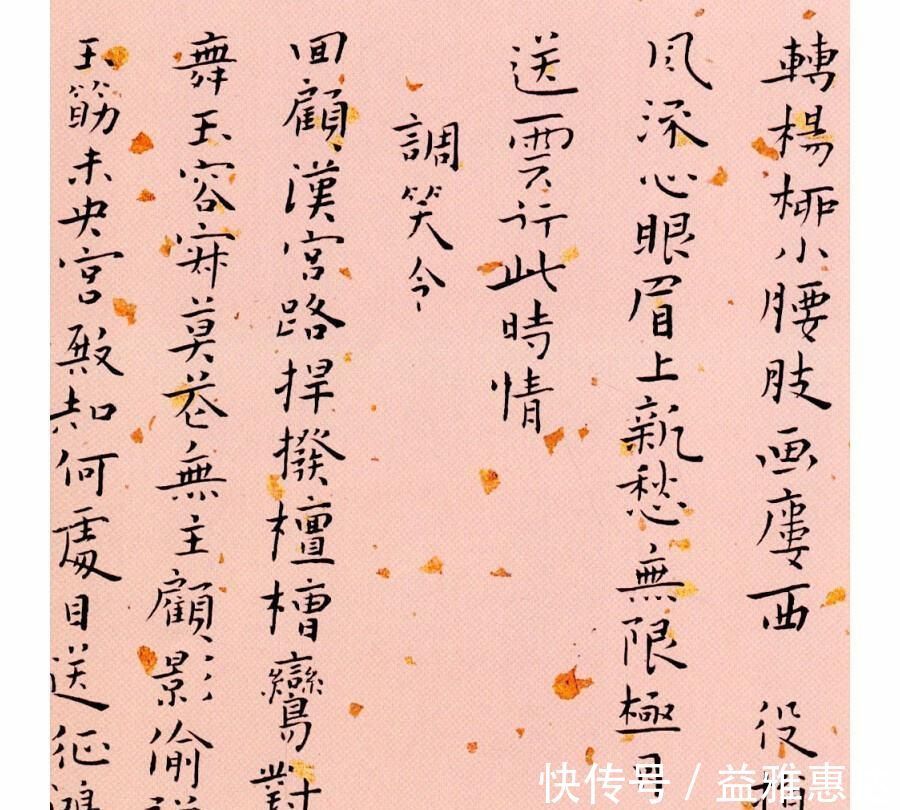 轉楊柳小腰肢画廔西 役
風流心眼眉上新愁無限極目
送雲行此時情
調笑令
回顧漢宮路捍撥檀槽鸞對
舞玉容寂寞花無主顧影偷
玉筯未央宮殿知何處目送征鴻
快传号 / 益雅惠